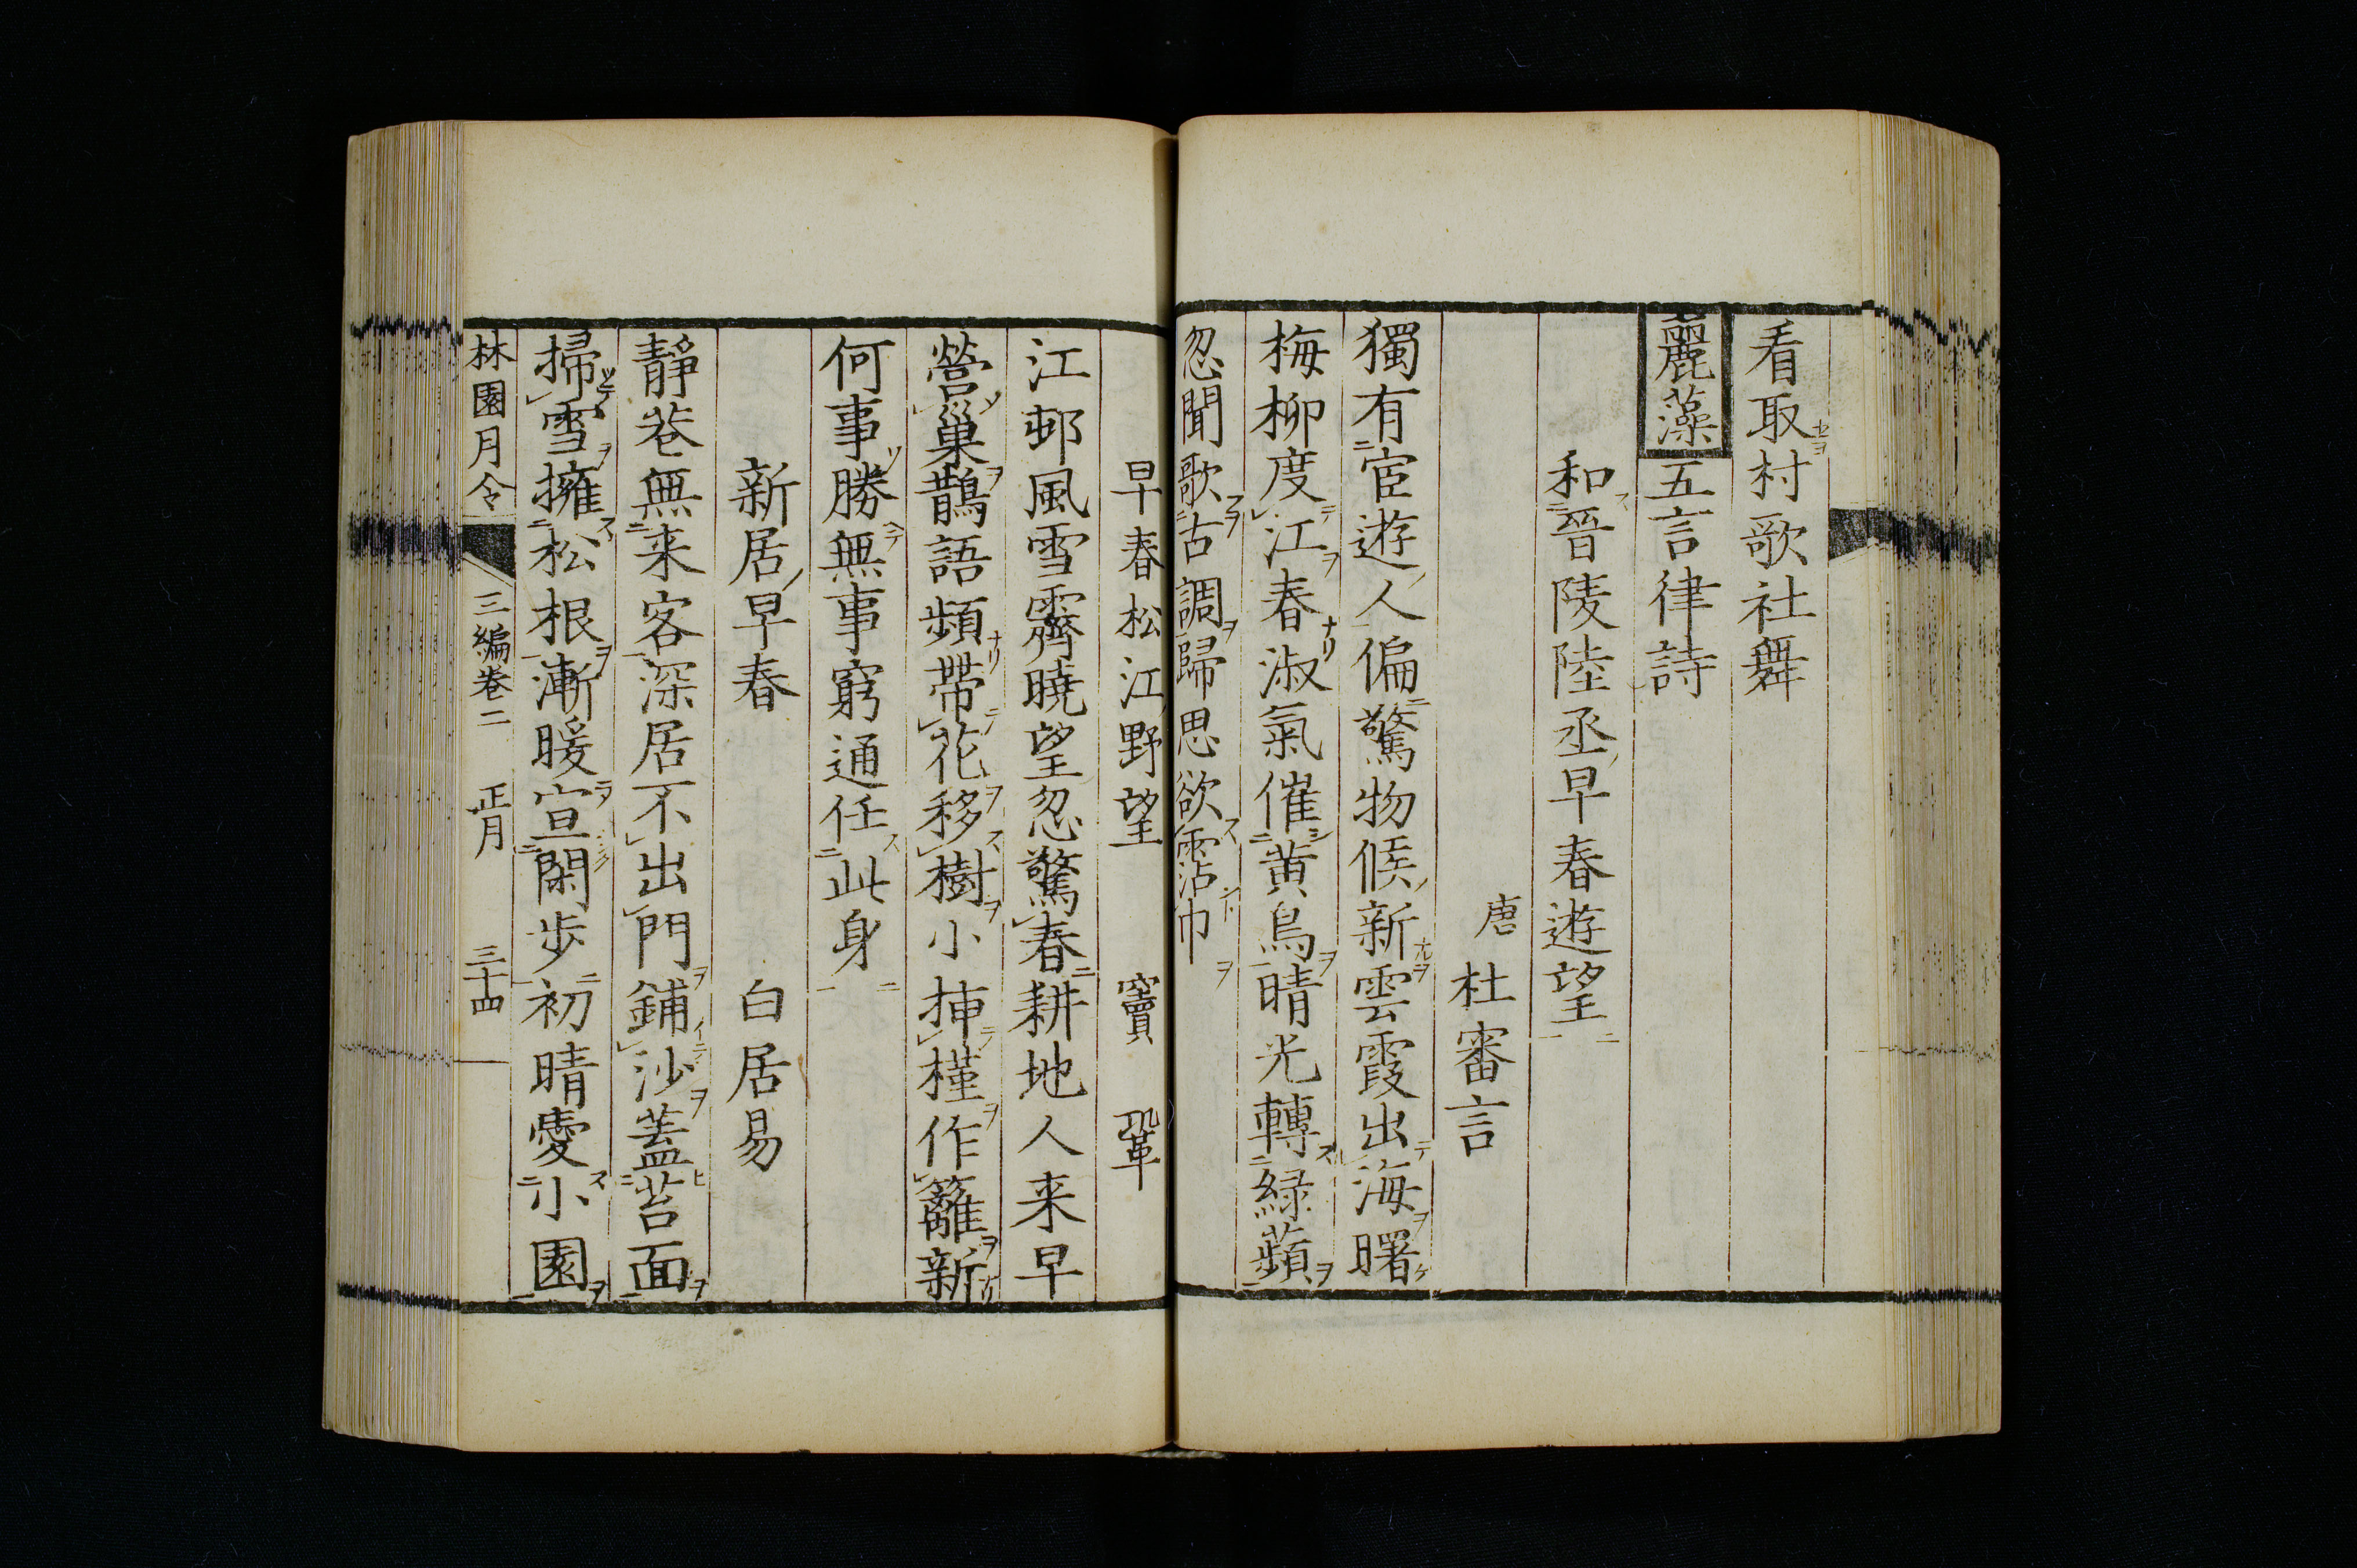 看取村歌社舞
麗藻五言律詩
和晉陵陸丞早春遊望
唐 杜審言
獨有宦遊人偏驚物候新雲霞出海曙
梅柳度江春淑氣催黄鳥晴光轉緑蘋
忽聞歌古調歸思欲霑巾
早春松江野望 竇鞏
江邨風雪霽曉望忽驚春耕地人来早
營巢鵲語頻帶花移樹小挿槿作籬新
何事勝無事窮通任此身
新居早春 白居易
靜巷無来客深居不出門鋪沙蓋苔面
掃雪擁松根漸暖宣閑歩初晴愛小園
林園月令 三編卷二 正月 三十四